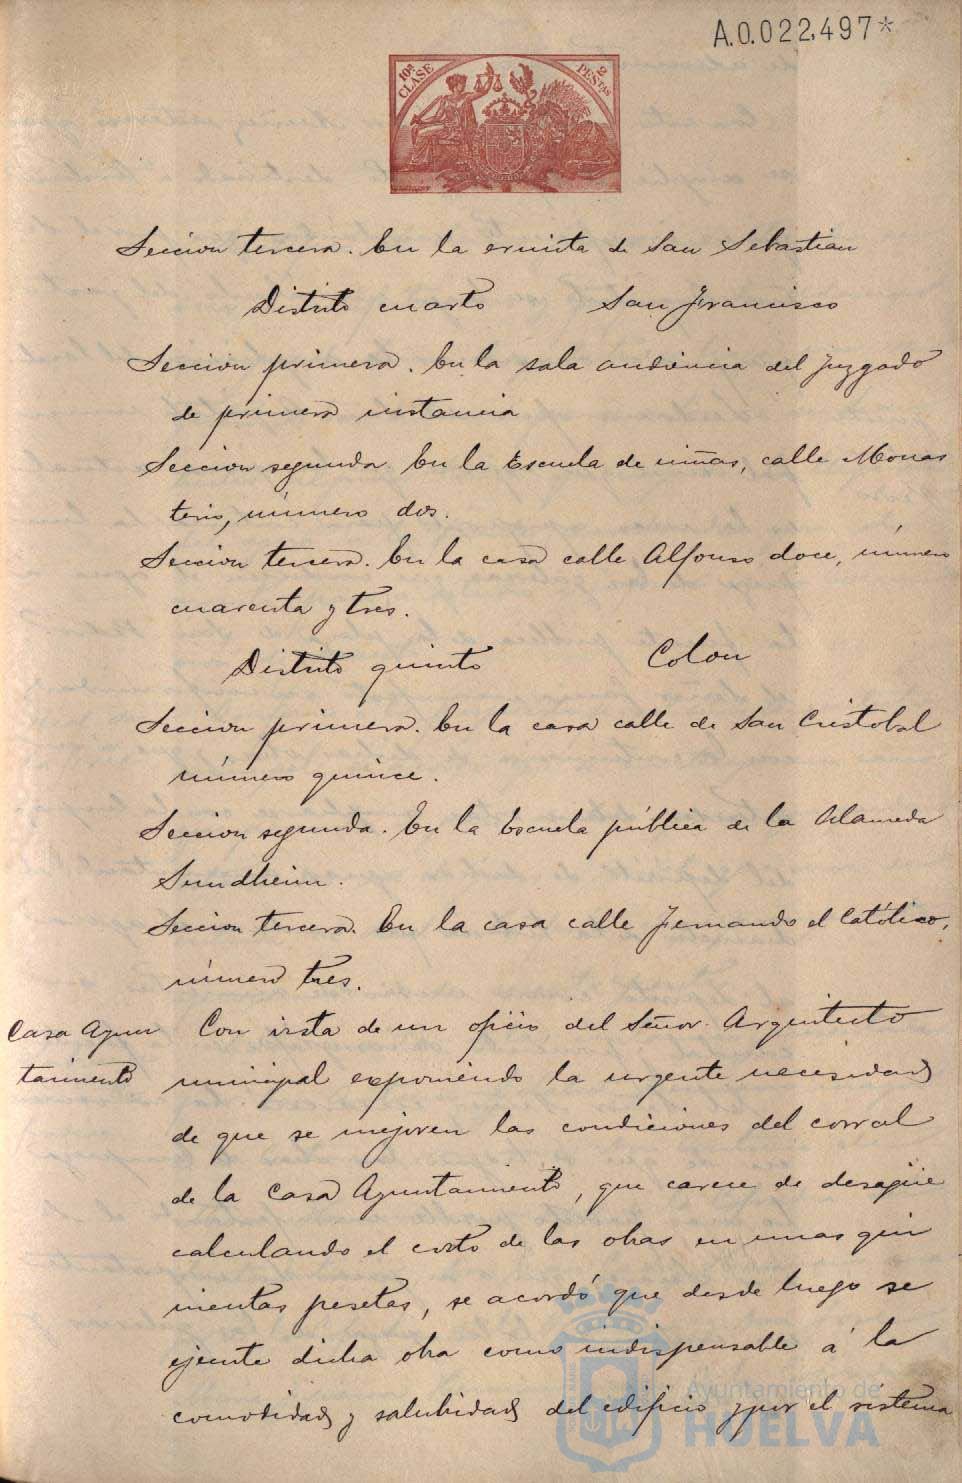 A.0.022,497*
10ª CLASE
2 PESTAS
Seccion tercera. En la ermita de San Sebastian
Distrito cuarto San Francisco
Seccion primera. En la sala audiencia del Juzgado
de primera instancia
Seccion segunda. En la Escuela de niñas, calle Monas
terio, número dos.
Seccion tercera. En la casa calle Alfonso doce, número
cuarenta y tres.
Distrito quinto Colon
Seccion primera. En la casa calle de San Cristobal
número quince.
Seccion segunda. En la Escuela pública de la Alameda
Sundheim.
Seccion tercera. En la casa calle Fernando el Católico,
número tres.
Casa Ayun
tamiento
Con vista de un oficio del Señor Arquitecto
municipal exponiendo la urgente necesidad
de que se mejoren las condiciones del corral
de la Casa Ayuntamiento, que carece de desagüe
calculando el costo de las obras en unas quin
nientas pesetas, se acordó que desde luego se
ejecute dicha obra como indispensable á la
comodidad y salubridad del edificio y por el sistema
Ayuntamiento de
HUELVA